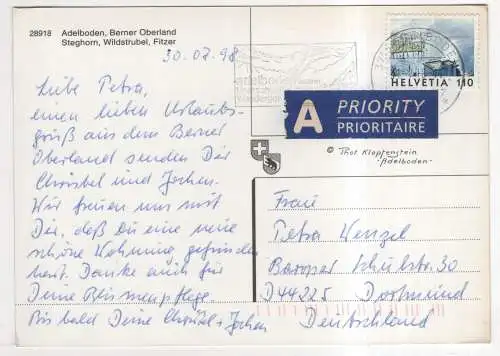 28918 Adelboden, Berner Oberland
Steghorn, Wildstrubel, Fitzer
30.07.98
Liebe Petra,
einen lieben Urlaubs-
gruß aus dem Berner
Oberland senden Dir
Christel und Jochen.
Wir freuen uns mit
Dir, daß Du eine neue
schöne Wohnung gefunden
hast. Danke auch für
Deine Blumenpflege.
Bis bald Deine Christel + Jochen
adelboden
HELVETIA 110
A PRIORITY
PRIORITAIRE
© Thor Klopfenstein
-Adelboden-
Frau
Petra Wenzel
Baroper Schulstr. 30
D 44225 Dortmund
Deutschland